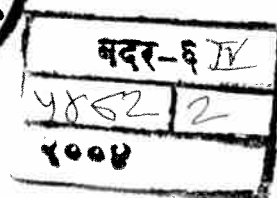 बदर-६ IV
५४८२ 2
२००४